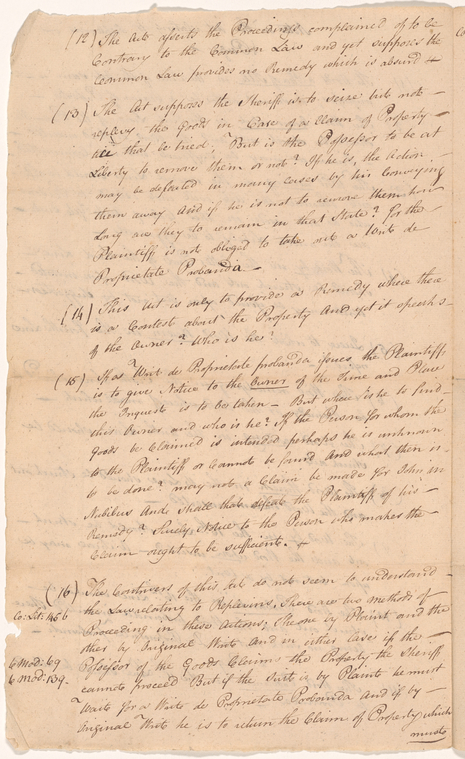 (12) The Act asserts the Proceedings complained of to be
Contrary to the Common Law and yet supposes the
Common Law provides no Remedy which is absurd
(13) The Act supposes the Sheriff is to seize but not
replevy the Goods in Case of a Claim of Property
till that be tried, But is the Possessor to be at
Liberty to remove them or not? If he is, the Action
may be defeated in many cases by his Conveying
them away And if he is not to remove them how
Long are they to remain in that State? for the
Plaintiff is not obliged to take out a Writ de
Proprietate Probanda
(14) This Act is only to provide a Remedy where there
is a Contest about the Property And yet it speaks
of the Owner? Who is he?
(15) If a Writ de Proprietate probanda issues the Plaintiff
is to give Notice to the Owner of the Time and Place
the Inquest is to be taken — But where is he to find
this Owner and who is he? If the Person for whom the
Goods be Claimed is intended perhaps he is unknown
to the Plaintiff or Cannot be found And what then is
to be done? may not a Claim be made for John in
Nubibus And shall that defeat the Plaintiff of his
Remedy? Surely Notice to the Person who makes the
Claim ought to be sufficient.
(16) The Contrivers of this Act do not seem to understand
the Law relating to Replevins, There are two methods of
Co: Lit: 145 b
Proceeding in these Actions, the one by Plaint and the
other by Original Writ And in either Case if the
6 Mod: 69
Possessor of the Goods Claims the Property the Sheriff
6 Mod: 139.
cannot proceed But if the Suit is by Plaint he must
Wait for a Writ de Proprietate Probanda And if by
Original Writ he is to return the Claim of Property which
must